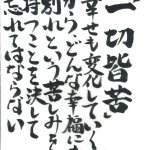 一切皆苦
幸せも変化していく
から、どんな幸福にも
別れという苦しみを
持つことを決して
忘れてはならない